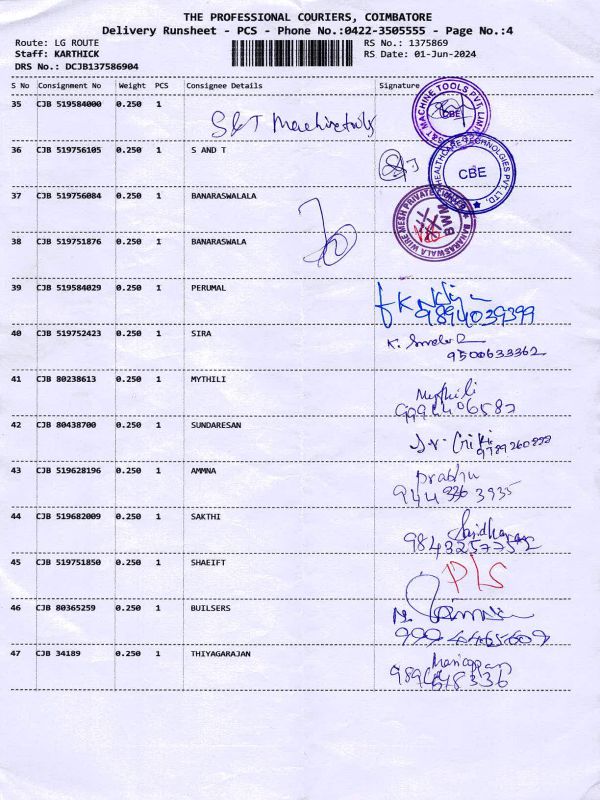 THE PROFESSIONAL COURIERS, COIMBATORE
Delivery Runsheet - PCS - Phone No.:0422-3505555 - Page No.:4
Route: LG ROUTE RS No.: 1375869
Staff: KARTHICK RS Date: 01-Jun-2024
DRS No.: DCJB137586904
S No Consignment No Weight PCS Consignee Details Signature
35 CJB 519584000 0.250 1
S&T Machinetools
S&T MACHINE TOOLS PVT. LIMITED
CBE
36 CJB 519756105 0.250 1 S AND T
HEALTHCARE TECHNOLGIES PVT. LTD.
CBE
37 CJB 519756084 0.250 1 BANARASWALALA
BANARASWALA WIRE MESH PRIVATE LIMITED
BWM
38 CJB 519751876 0.250 1 BANARASWALA
39 CJB 519584029 0.250 1 PERUMAL
9894039399
40 CJB 519752423 0.250 1 SIRA
9500633362
41 CJB 80238613 0.250 1 MYTHILI
Mythili
42 CJB 80438700 0.250 1 SUNDARESAN
43 CJB 519628196 0.250 1 AMMNA
Prabhu
44 CJB 519682009 0.250 1 SAKTHI
45 CJB 519751850 0.250 1 SHAEIFT
PLS
46 CJB 80365259 0.250 1 BUILSERS
47 CJB 34189 0.250 1 THIYAGARAJAN